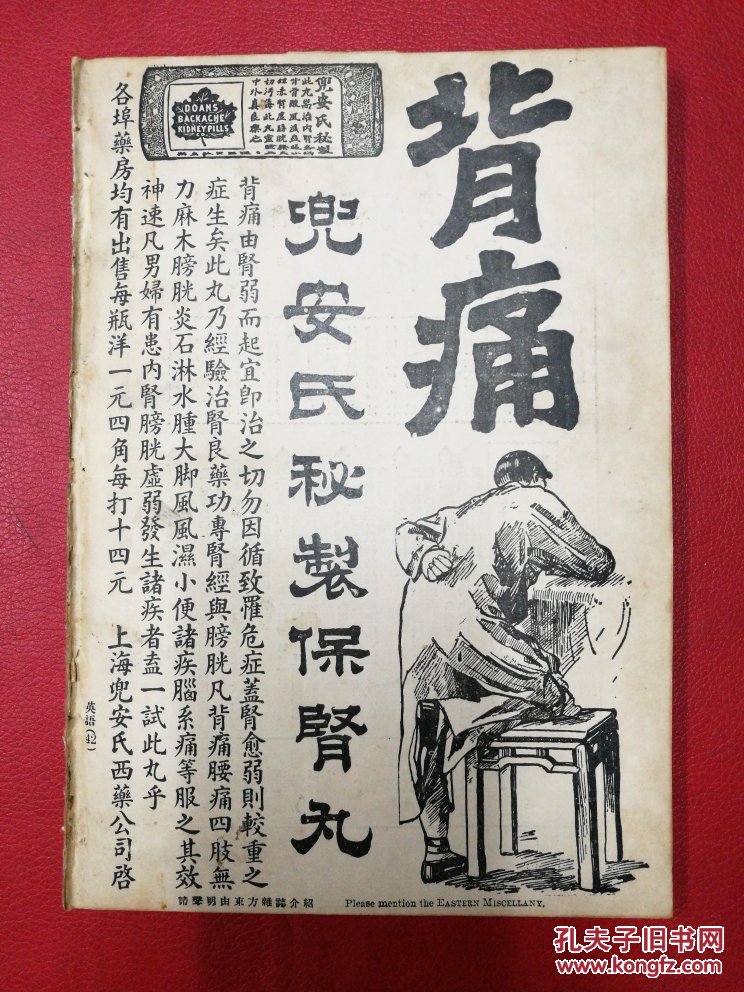 背痛
兜安氏秘製保腎丸
DOANS
BACKACHE
KIDNEY PILLS
兜安氏秘製
背痛由腎弱而起宜卽治之切勿因循致罹危症蓋腎愈弱則較重之
症生矣此丸乃經驗治腎良藥功專腎經與膀胱凡背痛腰痛四肢無
力麻木膀胱炎石淋水腫大脚風風濕小便諸疾腦系痛等服之其效
神速凡男婦有患內腎膀胱虛弱發生諸疾者盍一試此丸乎
各埠藥房均有出售每瓶洋一元四角每打十四元 上海兜安氏西藥公司啓
英語(42)
請聲明由東方雜誌介紹
Please mention the EASTERN MISCELLANY.
孔夫子旧书网
KONGFZ.COM